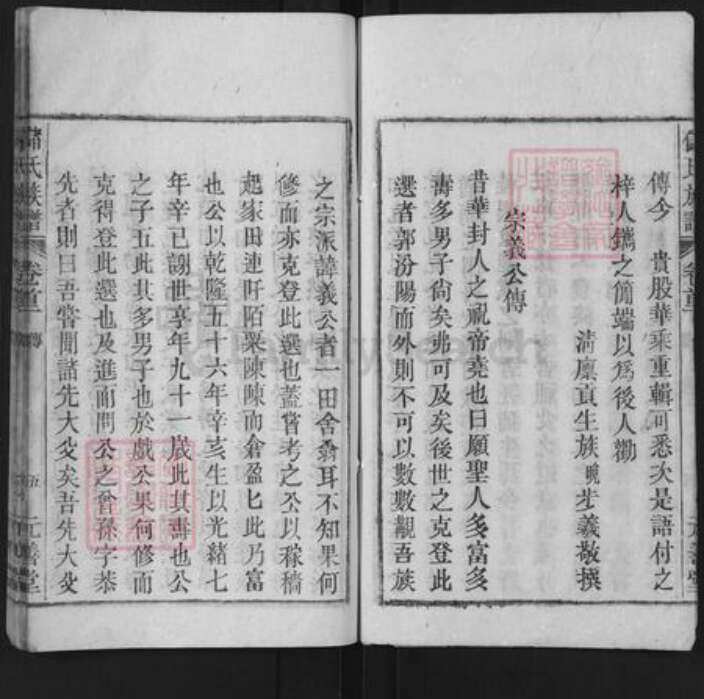 傳今 貴股華乘重輯可悉次是語付之
梓人鐫之簡端以爲後人勸
清廩貢生族晚步義敬撰
宗義公傳
昔華封人之祝帝堯也曰願聖人多富多
壽多男子尙矣弗可及矣後世之克登此
選者郭汾陽而外則不可以數數覯吾族
之宗派諱義公者一田舍翁耳不知果何
修而亦克登此選也蓋嘗考之公以稼穡
起家田連阡陌粟陳陳而倉盈匕此乃富
也公以乾隆五十六年辛亥生以光緒七
年辛已謝世享年九十一歲此其壽也公
之子五此其多男子也於戲公果何修而
克得登此選也及進而問公之曾孫字恭
先者則曰吾嘗聞諸先大父矣吾先大父
氏族譜
卷首
傳
五
元善堂